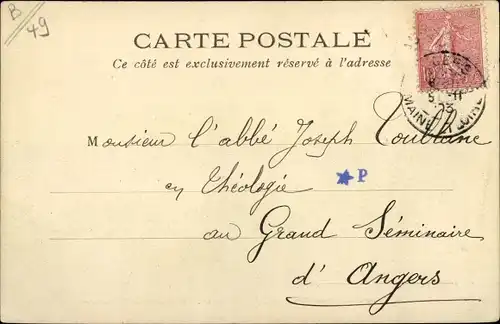 B
49
CARTE POSTALE
Ce côté est exclusivement réservé à l'adresse
MAINE LOIRE
Monsieur l'abbé Joseph
en théologie ★ P
au Grand Séminaire
d'Angers